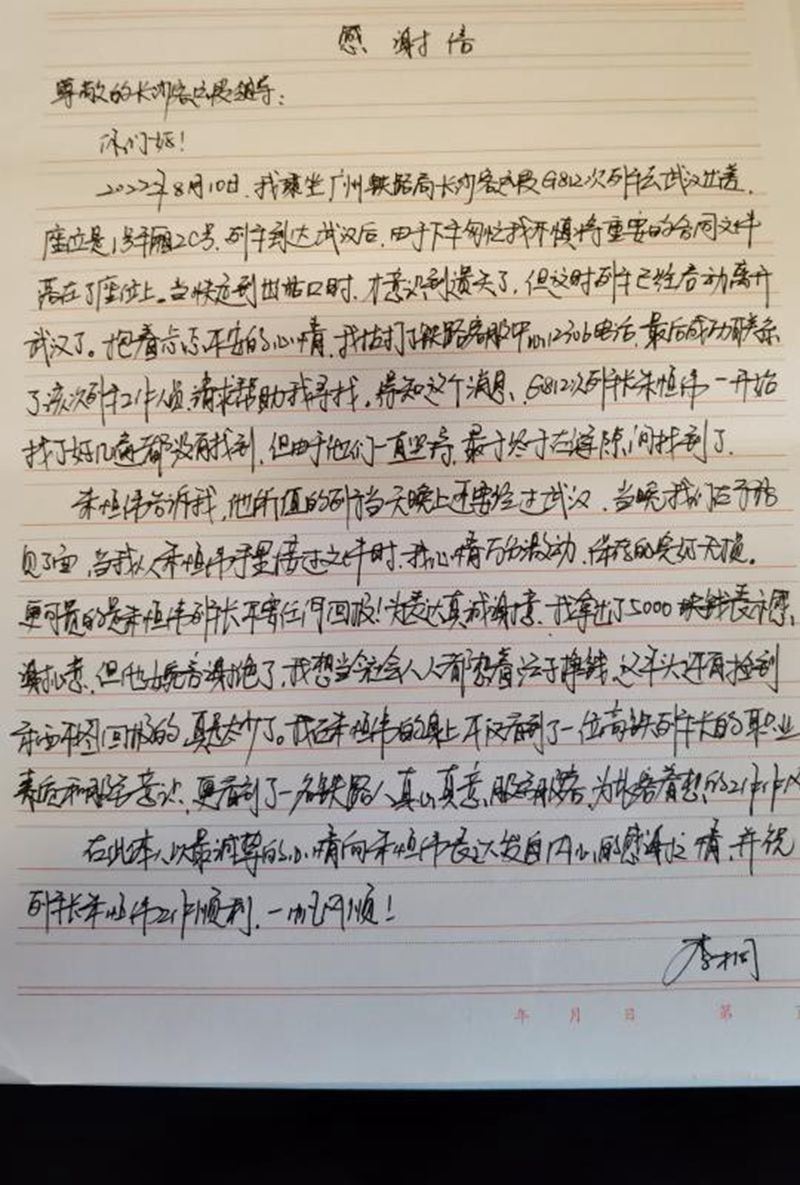 感谢信
尊敬的长沙客运段领导：
你们好！
2022年8月10日，我乘坐广州铁路局长沙客运段G812次列车去武汉出差，
座位是1号车厢2C号，列车到达武汉后，由于下车匆忙我不慎将重要的合同文件
落在了座位上。当快走到出站口时，才意识到遗失了，但这时列车已经启动离开
武汉了。抱着忐忑不安的心情，我拨打了铁路客服中心12306电话，最后成功联系
了该次列车工作人员，请求帮助我寻找。得知这个消息，G812次列车长朱恒伟一开始
找了好几遍都没有找到，但由于他们一直坚持，最终于在缝隙间找到了。
朱恒伟告诉我，他所值的列车当天晚上还要经过武汉，当晚我们在车站
见了面，当我从朱恒伟手里接过文件时，我心情万分激动，保存的完好无损。
更可贵的是朱恒伟列车长不要任何回报！为表达真诚谢意，我拿出了5000块钱表示
谢意，但他婉言谢绝了，我想当今社会人人都想着法子挣钱，这年头还有捡到
东西不图回报的，真是太少了。我在朱恒伟的身上不仅看到了一位高铁列车长的职业
素质和服务意识，更看到了一名铁路人真心真意，为旅客着想的工作作风
在此本人以最诚挚的心情向朱恒伟表达发自内心的感谢之情，并祝
列车长朱恒伟工作顺利，一帆风顺！
年 月 日 第